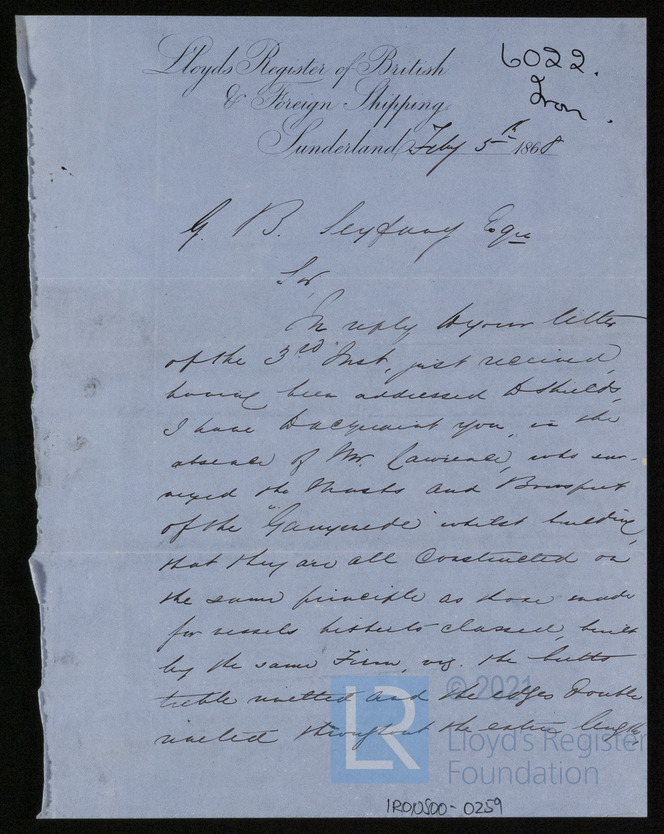 Lloyds Register of British
& Foreign Shipping,
6022.
Iron.
Sunderland Feby 5th 1868
G. B. Seyfang Esqre
Sir
In reply to your letter
of the 3rd Inst, just received,
having been addressed to Shields,
I have to acquaint you, in the
absence of Mr. Lawrence, who sur-
veyed the Masts and Bowsprit
of the "Ganymede" whilst building,
that they are all constructed on
the same principle as those made
for vessels hitherto classed, built
by the same Firm, viz. the butts
treble rivetted and the edges double
riveted throughout the entire length,
LR
© 2021
Lloyd's Register
Foundation
IRON500-0259